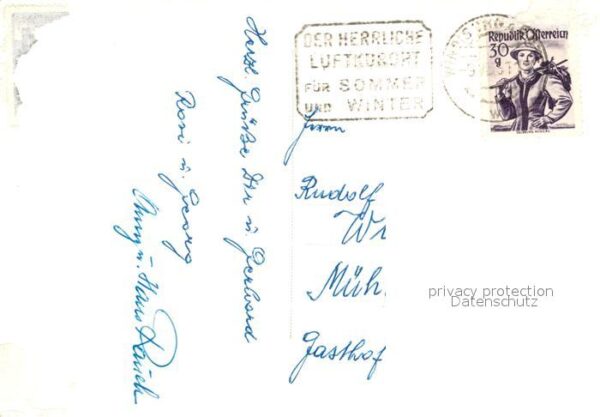 Herzl. Grüße Dir u. Gerhard
Rosi u. Georg
Anny u. Hans
DER HERRLICHE
LUFTKURORT
FÜR SOMMER
UND WINTER
Republik Österreich
30
g
Herrn
Rudolf
Wi
Müh
Gasthof
privacy protection
Datenschutz